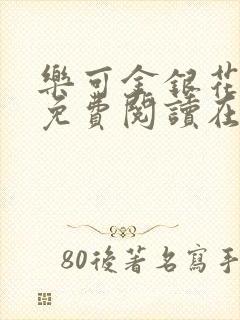 樂可金銀花
免費閱讀在
80後著名寫手